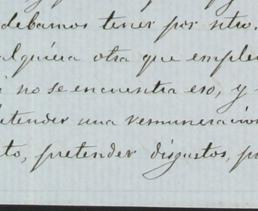 debamos tener por ntro.
alquiera otra que emplee
no se encuentra eso, y
etender una remuneracion
to, pretender disgustos, p